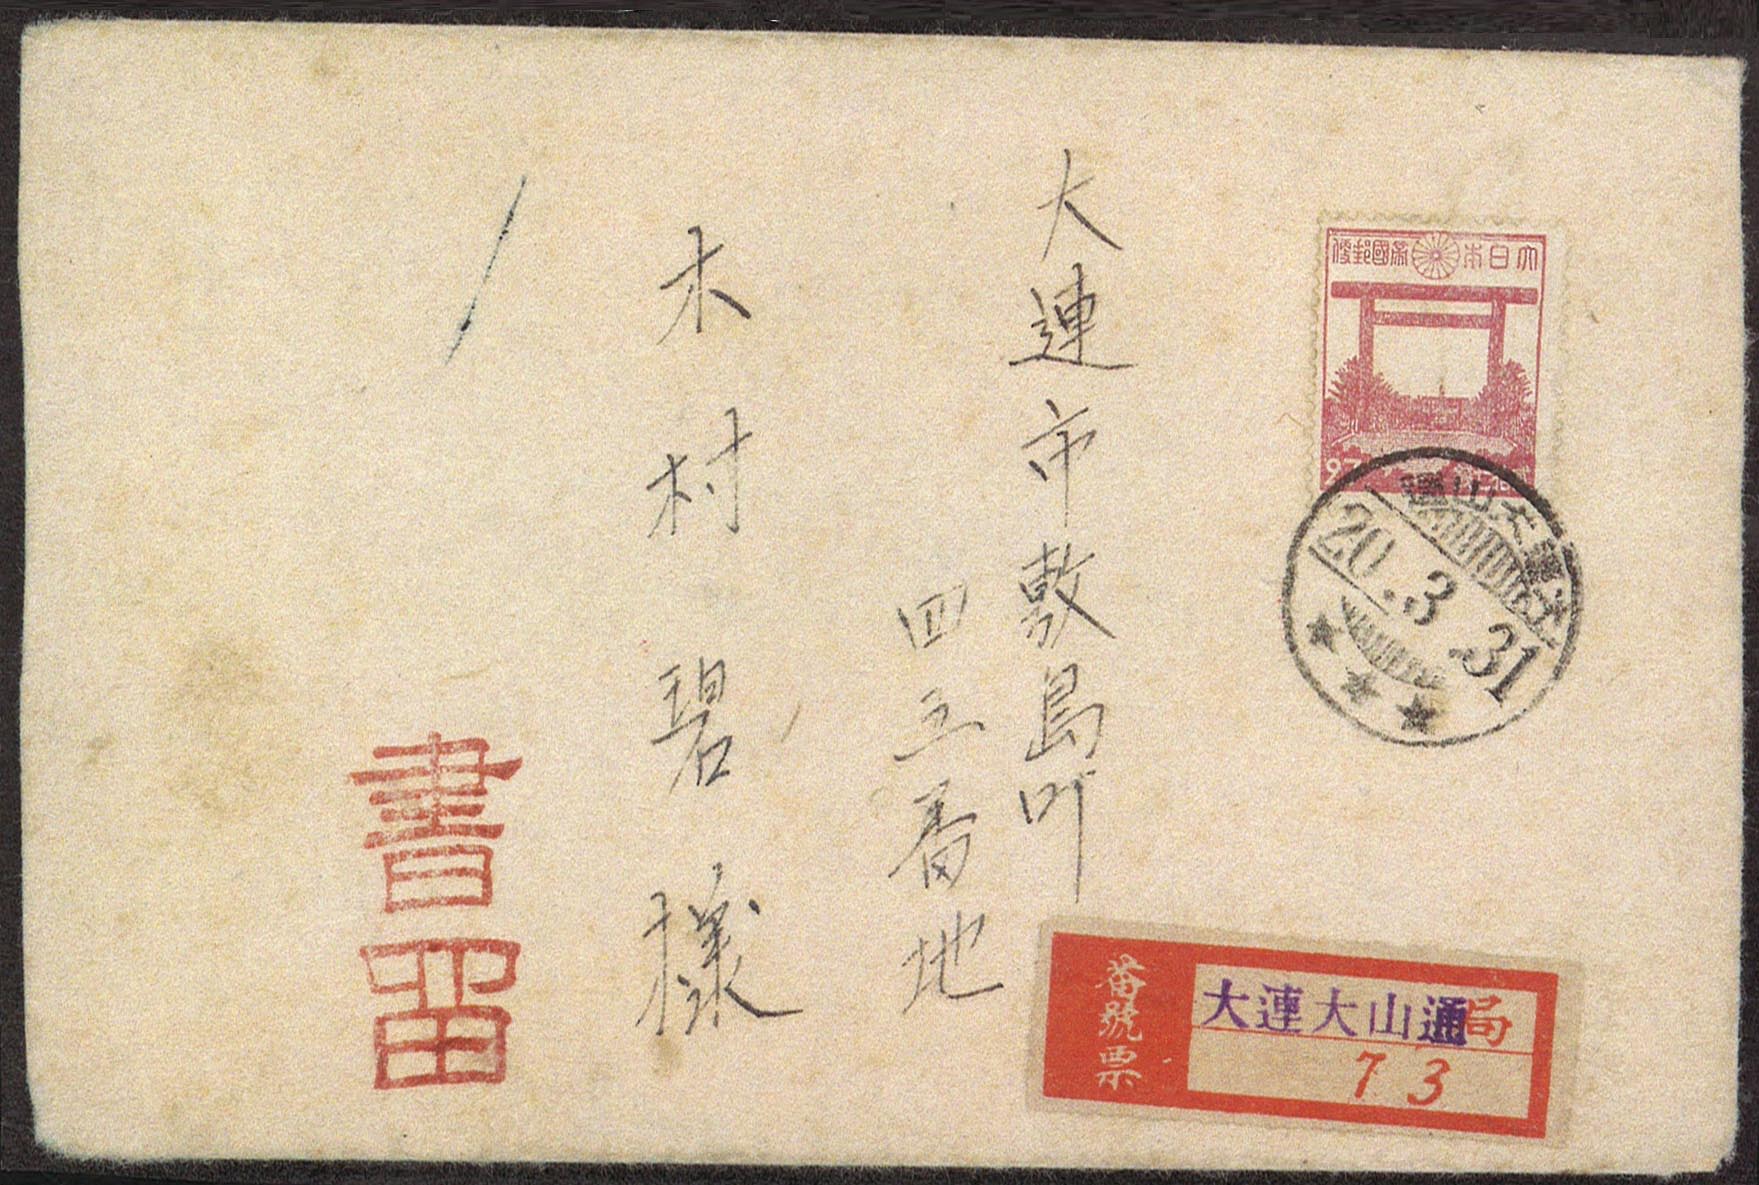 大日本帝國郵便
27
大連大山通
20.3.31
大連市敷島町
四三番地
木村碧様
書留
番號票
大連大山通局
73